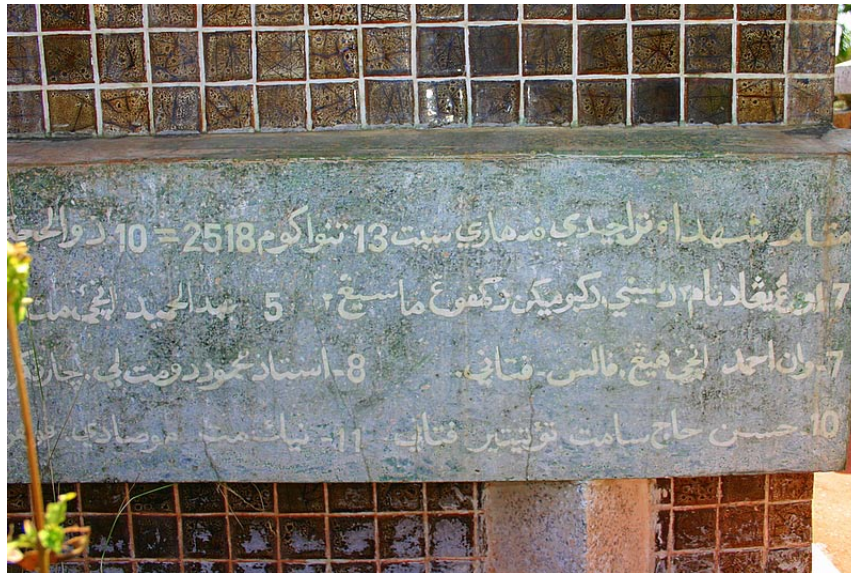 مقام شهداء ترجيدي فد هاري سبت 13 تنواكوم 2518 = 10 ذوالحج
7 اورڠ يڠاد نام٢ دسيني دكبوميكن دكمفوڠ ماسيڠ٢ 5 عبدالحميد انجئ مت
7- وان احمد انجئ هيڠ. فالس. فتاني. 8- استاذ محمود دومت لي. چار
10. حسن حاج سامت فتاني 11- نيات مت